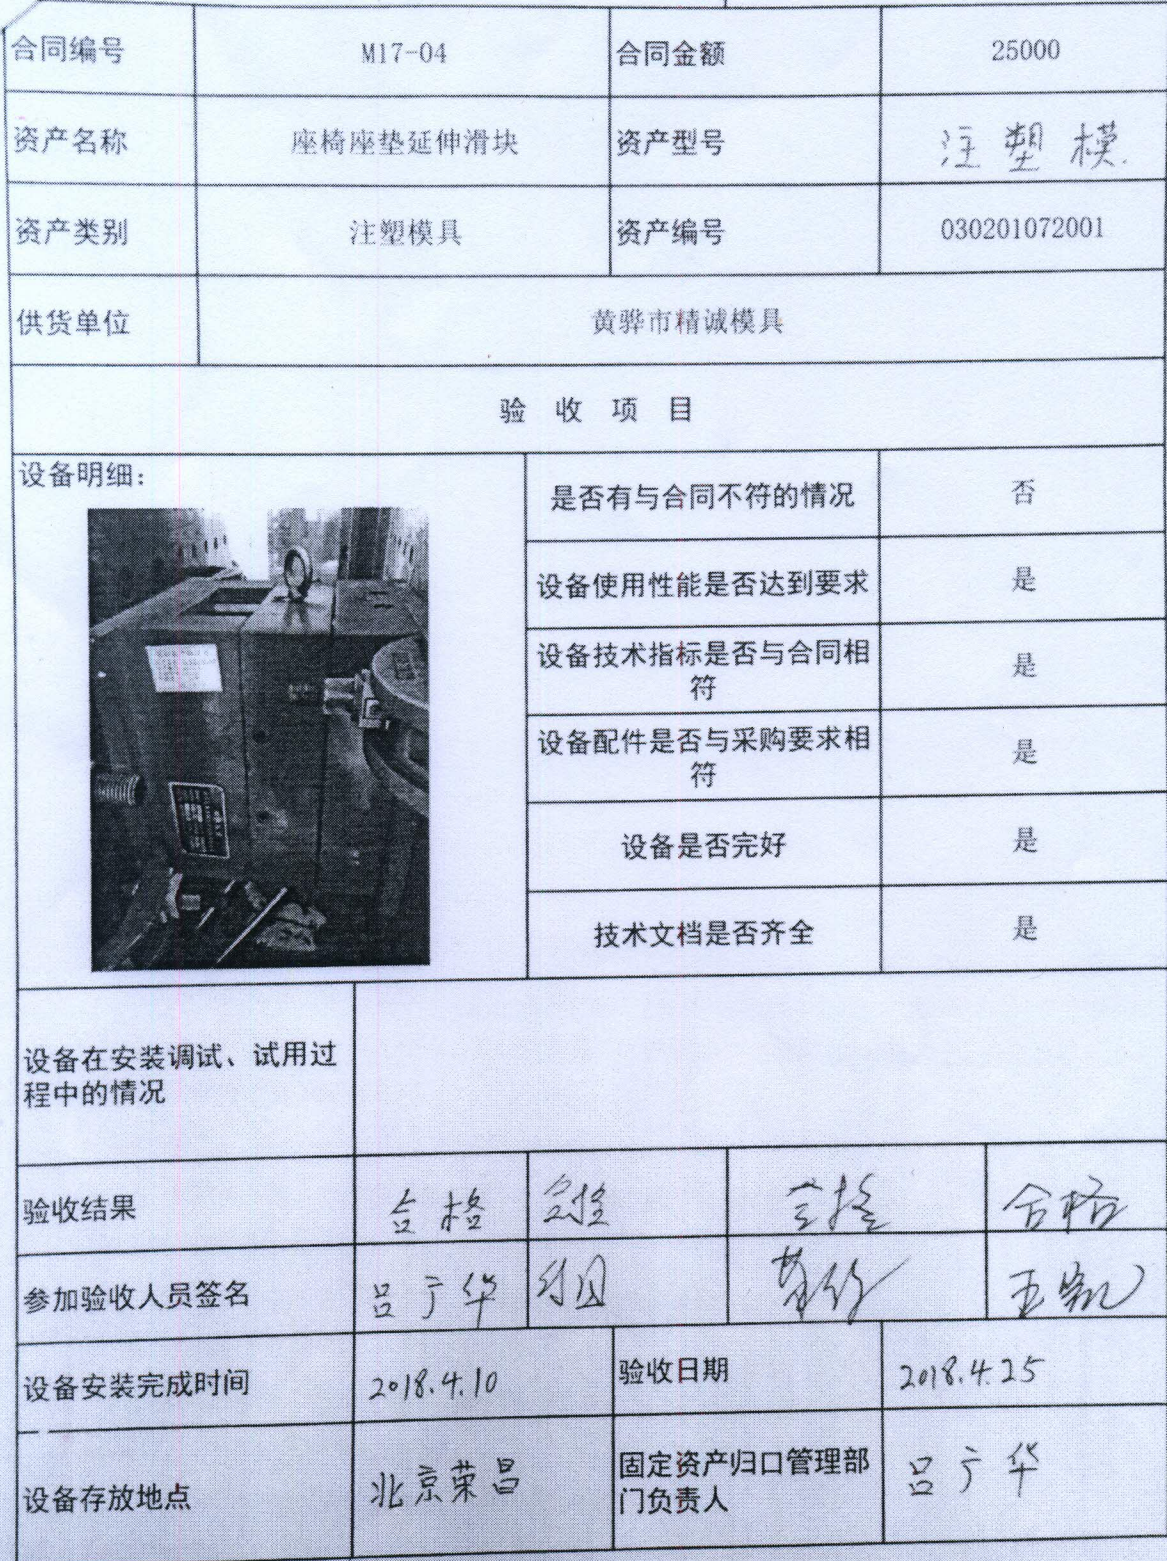 合同编号 M17-04 合同金额 25000
资产名称 座椅座垫延伸滑块 资产型号 注塑模
资产类别 注塑模具 资产编号 030201072001
供货单位 黄骅市精诚模具
验收项目
设备明细：
是否有与合同不符的情况 否
设备使用性能是否达到要求 是
设备技术指标是否与合同相
符 是
设备配件是否与采购要求相
符 是
设备是否完好 是
技术文档是否齐全 是
设备在安装调试、试用过
程中的情况
验收结果 合格 合格 合格 合格
参加验收人员签名 吕广华 王凯
设备安装完成时间 2018.4.10 验收日期 2018.4.25
设备存放地点 北京荣昌 固定资产归口管理部
门负责人 吕广华